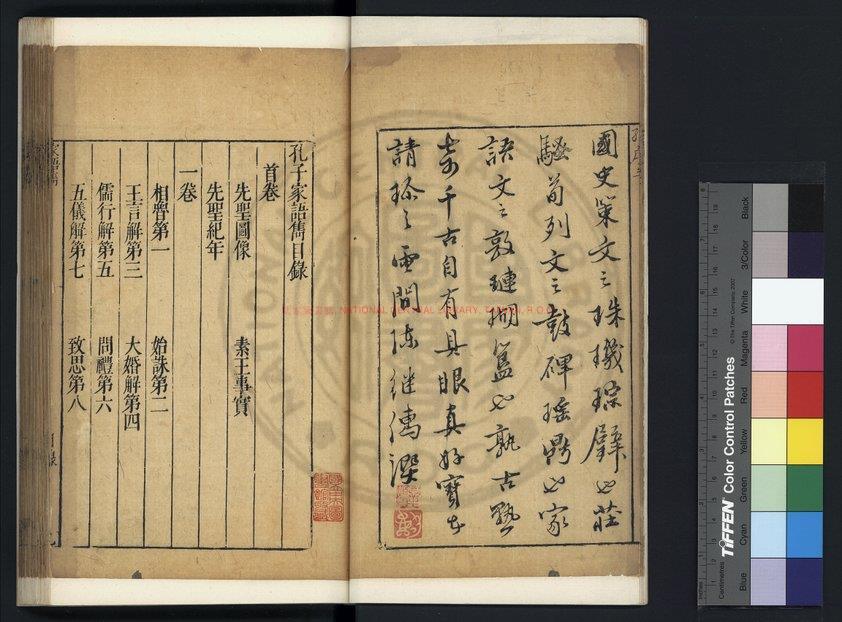 國史策文之珠璣琮璧也莊
騷荀列文之鼓碑瑶鼎也家
語文之敦璉瑚簋也孰古孰
奇千古自有具眼真好寶者
請之雲間陳繼儒譔
孔子家語儁目錄
首卷
先聖圖像 素王事實
先聖紀年
一卷
相魯第一 始誅第二
王言解第三 大婚解第四
儒行解第五 問禮第六
五儀解第七 致思第八
目錄
NATIONAL CENTRAL LIBRARY, TAIWAN, R.O.C
TIFFEN Color Control Patches
© The Tiffen Company, 2007
Centimetres
Inches
Blue
Cyan
Green
Yellow
Red
Magenta
White
3/Color
Black